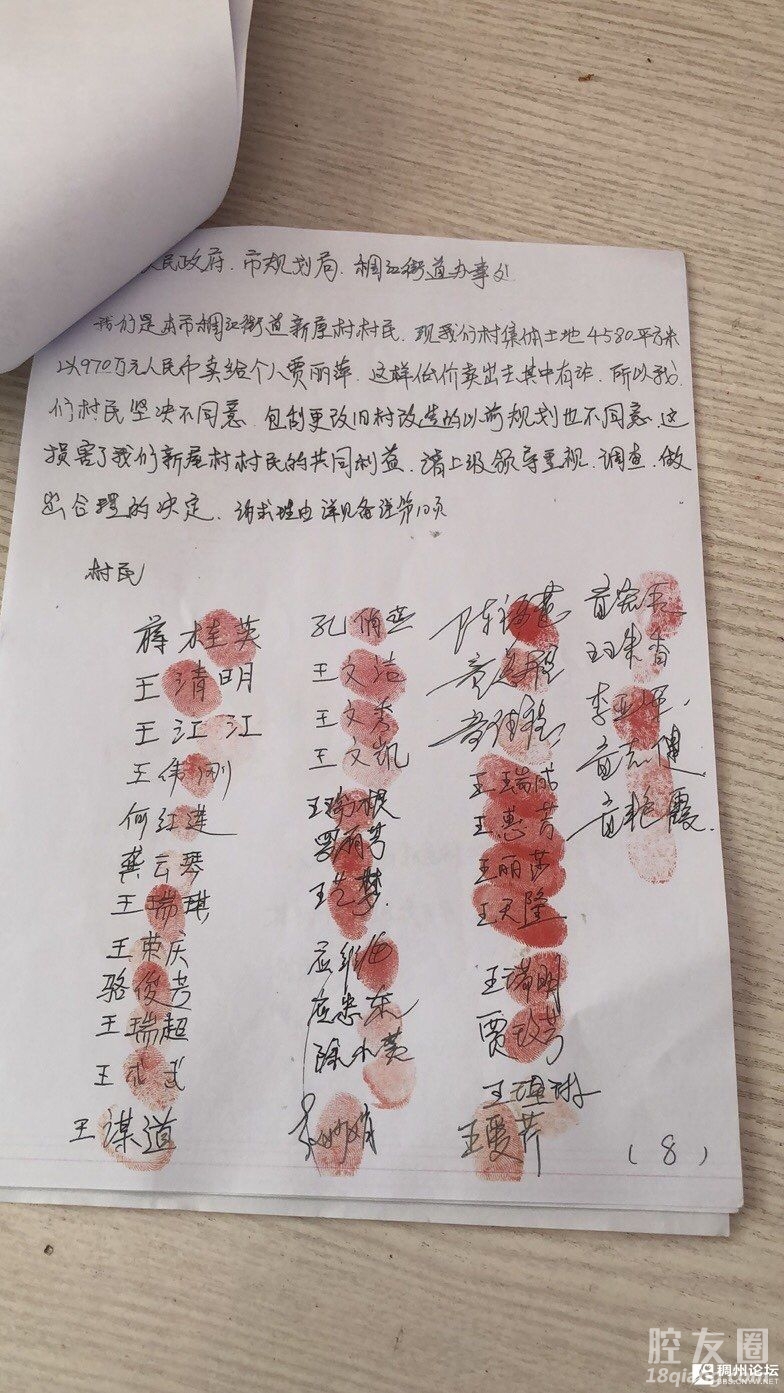 人民政府.市规划局.稠江街道办事处
我们是本市稠江街道新屋村村民.现我们村集体土地4580平方米
以970万元人民币卖给个人贾丽萍.这样低价卖出去其中有诈.所以我
们村民坚决不同意.包刮更改旧村改造的以前规划也不同意.这
损害了我们新屋村村民的共同利益.请上级领导重视.调查.做
出合理的决定.诉求理由详见备注第10页
村民
蒋桂英
王清明
王江江
王伟刚
何红莲
龚云琴
王瑞琪
王荣庆
骆俊芳
王瑞超
王
王谋道
孔俏燕
王文洁
王文秀
王文凯
王艺梦
应忠东
王瑞成
王惠芳
王丽莎
王天隆
王瑞明
王爱芹
李
艳霞.
(8)
腔友圈
18qia
稠州论坛
BBS.CNYW.NET